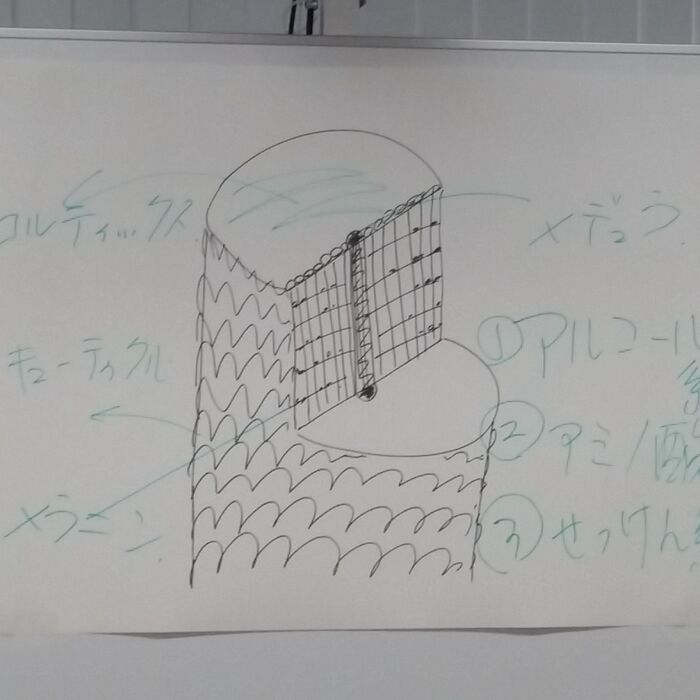 コルティックス
メデュラ
キューティクル
メラニン
①アルコール系
②アミノ酸
③せっけん系